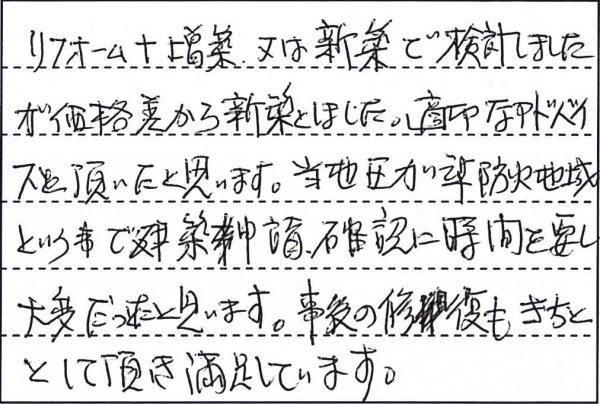 リフォーム+増築、又は新築で検討しました
が価格差から新築としました。適切なアドバイ
スを頂いたと思います。当地区が準防火地域
という事で建築申請、確認に時間を要し
大変だったと思います。事後の修復もきちと
として頂き満足しています。